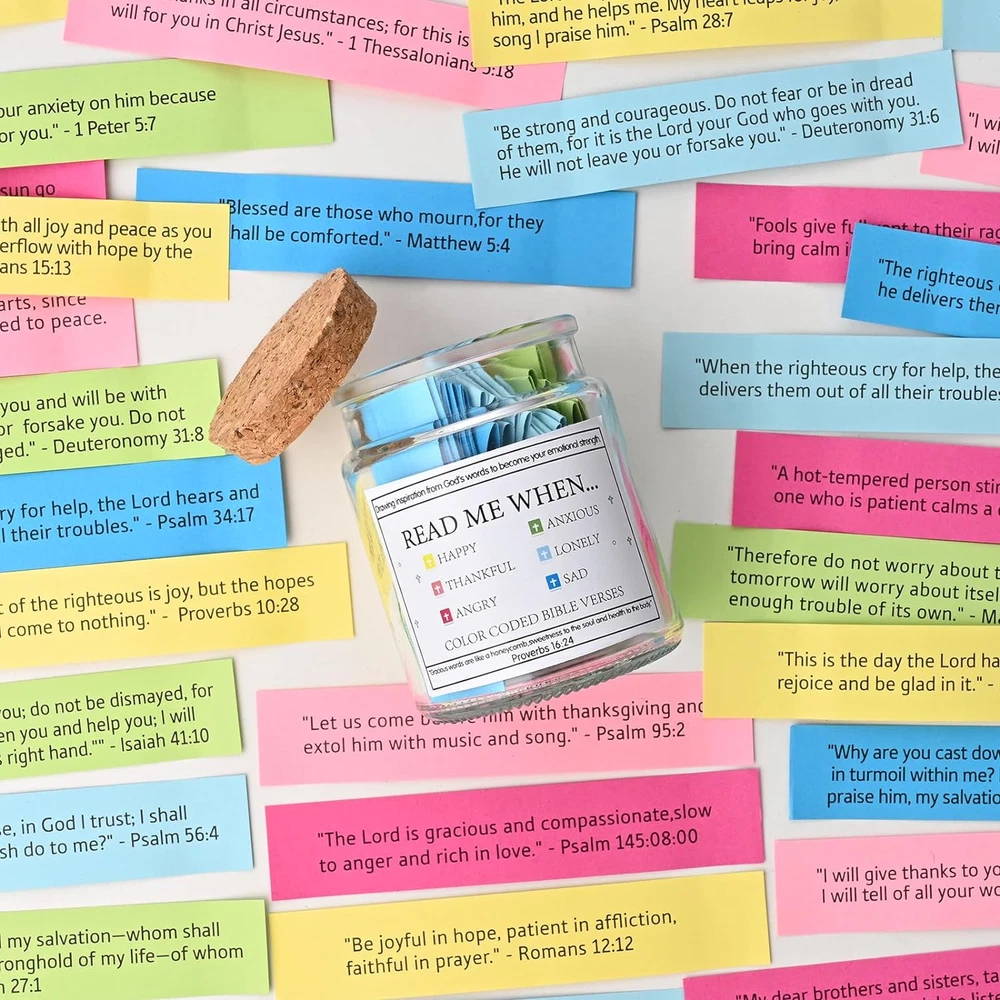 thanks in all circumstances; for this is
will for you in Christ Jesus." - 1 Thessalonians 5:18
him, and he helps me. My heart leaps for joy,
song I praise him." - Psalm 28:7
our anxiety on him because
or you." - 1 Peter 5:7
"Be strong and courageous. Do not fear or be in dread
of them, for it is the Lord your God who goes with you.
He will not leave you or forsake you." - Deuteronomy 31:6
"I wi
I wil
sun go
"Blessed are those who mourn,for they
shall be comforted." - Matthew 5:4
th all joy and peace as you
erflow with hope by the
ans 15:13
"Fools give full vent to their rag
bring calm i
"The righteous
he delivers the
arts, since
ed to peace.
"When the righteous cry for help, the
delivers them out of all their troubles
you and will be with
or forsake you. Do not
ged." - Deuteronomy 31:8
"A hot-tempered person stir
one who is patient calms a
ry for help, the Lord hears and
l their troubles." - Psalm 34:17
Drawing inspiration from God's words to become your emotional strength
READ ME WHEN...
HAPPY
THANKFUL
ANGRY
ANXIOUS
LONELY
SAD
COLOR CODED BIBLE VERSES
"Gracious words are like a honeycomb,sweetness to the soul and health to the body"
Proverbs 16:24
"Therefore do not worry about t
tomorrow will worry about itsel
enough trouble of its own." - Ma
t of the righteous is joy, but the hopes
come to nothing." - Proverbs 10:28
"This is the day the Lord ha
rejoice and be glad in it." -
you; do not be dismayed, for
en you and help you; I will
s right hand."" - Isaiah 41:10
"Let us come before him with thanksgiving and
extol him with music and song." - Psalm 95:2
"Why are you cast dow
in turmoil within me?
praise him, my salvatio
se, in God I trust; I shall
sh do to me?" - Psalm 56:4
"The Lord is gracious and compassionate,slow
to anger and rich in love." - Psalm 145:08:00
"I will give thanks to yo
I will tell of all your wo
d my salvation—whom shall
ronghold of my life—of whom
m 27:1
"Be joyful in hope, patient in affliction,
faithful in prayer." - Romans 12:12
"My dear brothers and sisters, ta